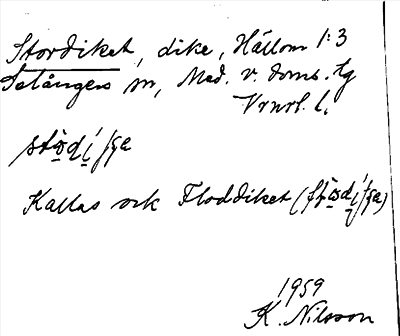 Stordiket, dike, Hällom 1:3
Selångers sn, Med. v. doms. tg
Vrnrl. l.
stω̱di̱/ʒa
Kallas ock Floddiket (flω̱di̱/ʒa)
1959
K. Nilsson